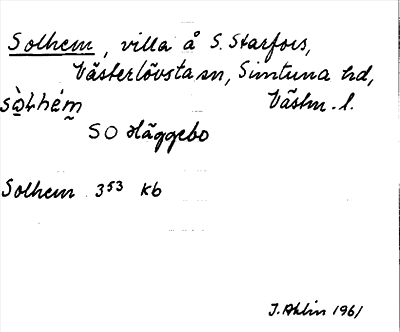 Solhem, villa å S. Starfors,
Västerlövsta sn, Simtuna hd,
sòlhém Västm. l.
SO Häggebo
Solhem 353 kb
J. Ahlin 1961